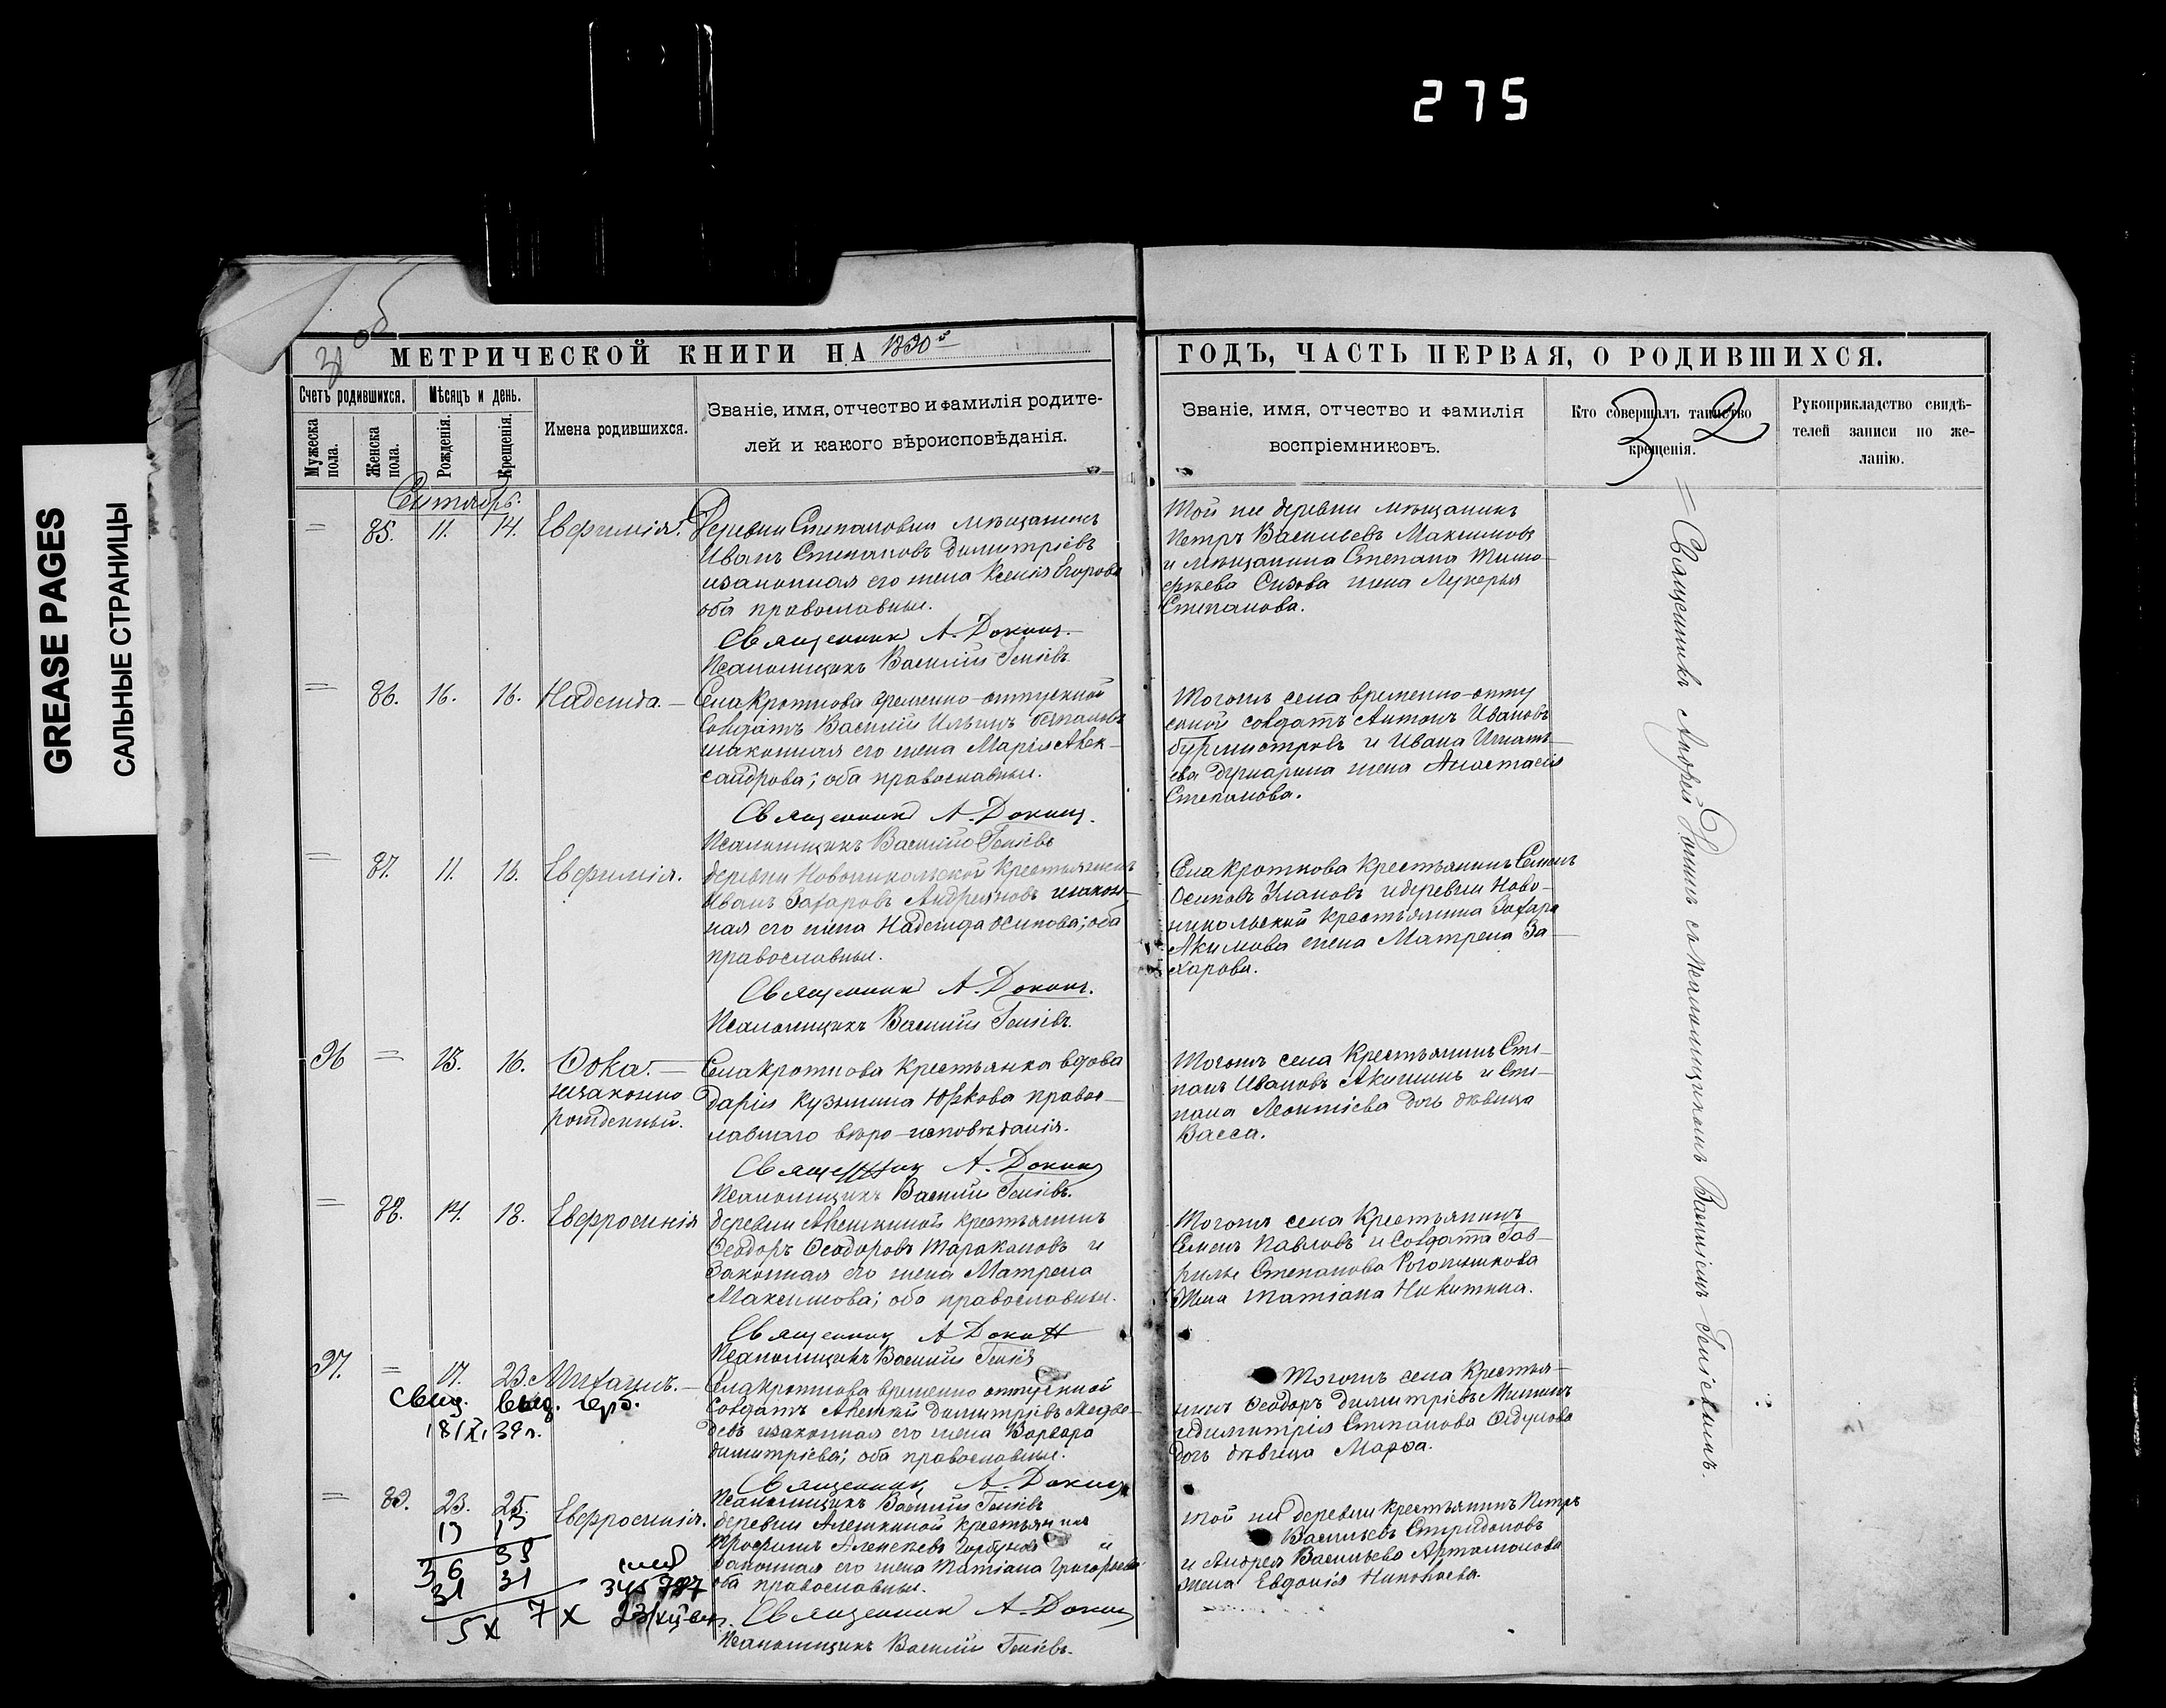 275
GREASE PAGES
САЛЬНЫЕ СТРАНИЦЫ
31 об
МЕТРИЧЕСКОЙ КНИГИ НА 1890й
ГОДЪ, ЧАСТЬ ПЕРВАЯ, О РОДИВШИХСЯ.
32
Счетъ родившихся.
Мѣсяцъ и день.
Имена родившихся.
Званіе, имя, отчество и фамилія родите-
лей и какого вѣроисповѣданія.
Званіе, имя, отчество и фамилія
воспріемниковъ.
Кто совершалъ таинство
крещенія.
Рукоприкладство свидѣ-
телей записи по же-
ланію.
Мужеска пола.
Женска пола.
Рожденія.
Крещенія.
Сентябрь.
= 85. 11. 14. Евфимія.
Деревни Степановки мѣщанинъ
Иванъ Степановъ Димитріевъ
изаконная его жена Ксенія Егорова
оба православные.
Священникъ А. Докинъ.
Псаломщикъ Василій
Той же деревни мѣщанинъ
Петръ Васильевъ Максимовъ
и мѣщанина Степана Тимо-
фѣева Сизова жена Лукерья
Степанова.
= 86. 16. 16. Надежда. —
Села Кроткова временно-отпускной
Солдатъ Василій Ильинъ
изаконная его жена Марія Алек-
сандрова; оба православные.
Священникъ А. Докинъ.
Псаломщикъ Василій
Тогожъ села временно-отпу
скной солдатъ Антонъ Ивановъ
Бурмистровъ и Ивана Игнать-
ева жена Анастасія
Степанова.
= 87. 11. 16. Евфимія.
деревни Новоникольской Крестьянинъ
Иванъ Захаровъ Андріяновъ изакон-
ная его жена Надежда Осипова; оба
православные.
Священникъ А. Докинъ.
Псаломщикъ Василій
Села Кроткова Крестьянинъ Семенъ
Осиповъ Улановъ идеревни Ново-
никольской Крестьянина Захара
Акимова жена Матрена За-
харова.
96 = 15. 16. Ѳока. —
незаконно
рожденный.
Села Кроткова Крестьянка вдова
Дарія Кузьмина Юркова правос-
лавнаго вѣро-исповѣданія.
Священникъ А. Докинъ
Псаломщикъ Василій
Тогожъ села Крестьянинъ Сте-
панъ Ивановъ Акишинъ и Сте-
пана Леонтіева дочь дѣвица
Васса.
= 88. 14. 18. Евфросинія
деревни Алешкиной крестьянинъ
Ѳеодоръ Ѳеодоровъ Таракановъ и
Законная его жена Матрена
Максимова; оба православные.
Священникъ А. Докинъ
Псаломщикъ Василій
Тогожъ села Крестьянинъ
Семенъ Павловъ и Солдата Гав-
рилы Степанова
жена Татіана Никитина.
97. = 17. 23. Михаилъ. —
Свид. выд.
18/XI 39 г.
Села Кроткова временно отпускной
Солдатъ Алексѣй Димитріевъ Медвѣ-
девъ изаконная его жена Варвара
Димитріева; оба православные.
Священникъ А. Докинъ
Псаломщикъ Василій
Тогожъ села Крестья-
нинъ Ѳеодоръ Димитріевъ Мишинъ
иДимитрія Степанова
дочь дѣвица Марѳа.
= 89. 23. 25. Евфросинія.
деревни Алешкиной крестьянинъ
Трофимъ Алексѣевъ Горбуновъ и
законная его жена Татіана Григорьева
оба православные.
Священникъ А. Докинъ
Псаломщикъ Василій
Той же деревни крестьянинъ Петръ
Васильевъ Спиридоновъ
и Андрея Васильева Артамонова
жена Евдокія Николаева.
13 13
36 38
31 31
5 X 7 X
Священникъ Андрей Докинъ съ псаломщикомъ Василіемъ